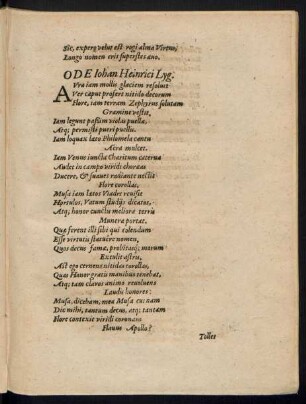 Sic, experg uelut est rogi alma Virtus,
Longo nomen erit superstes æuo.
ODE Iohan Heinrici Lyg.
AVra iam mollis glaciem resoluit
Ver caput profert nitido decorum
Flore, iam terram Zephyrus solutam
Gramine uestit,
Iam legunt passim uiolas puellæ,
Atq; permisti pueri puellis,
Iam loquax læto Philomela cantu
Aëra mulcet.
Iam Venus iuncta Charitum caterua
Audet in campo uiridi choreas
Ducere, & suaues rediante nectit
Flore corollas.
Musa iam lætos Viadri reuise
Hortulos, Vatum studijs dicatos,
Atq; honore cunctis meliora terris
Munera portat.
Quæ ferent illi sibi qui colendum
Esse uirtutis statuere nomen,
Quos decus famæ, probitasq; morum
Extulit astris,
Ast ego cernens nitidas corollas,
Quas Hanor gratis manibus tenebat,
Atq; tam claros animo reuoluens
Laudis honores:
Musa, dicebam, mea Musa cui nam
Dic mihi, tantum decus, atq; tantam
Flore contexis uiridi coronam
Flauus Apollo?
Tolles